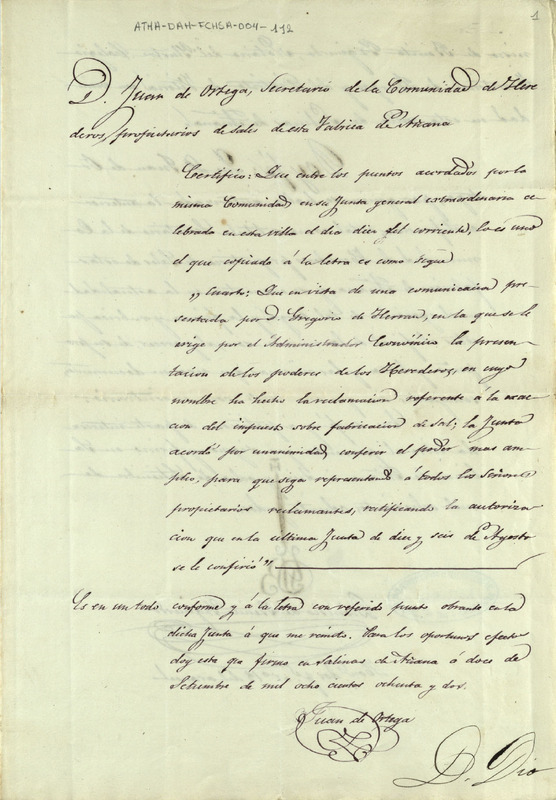 ATHA-DAH-FCHSA-004-112
1
D. Juan de Ortega, Secretario de la Comunidad de Here
deros, propietarios de sales de esta Fabrica de Añana
Certifico: Que entre los puntos acordados por la
misma Comunidad, en su Junta general extraordinaria ce
lebrada en esta villa el dia diez del corriente, lo es uno
el que copiado á la letra es como sigue
„Cuarto: Que en vista de una comunicacion pre-
sentada por D. Gregorio de Herran, en la que se le
exige por el Administrador Económico la presen-
tacion de los poderes de los Herederos, en cuyo
nombre ha hecho la reclamacion referente á la exac-
cion del impuesto sobre fabricacion de sal; la Junta
acordó por unanimidad, conferir el poder mas am-
plio, para que siga representando á todos los Señores
propietarios reclamantes, ratificando la autoriza-
cion que en la última Junta de diez y seis de Agosto
se le confirió”
Es en un todo conforme y á la letra con referido punto obrante en la
dicha Junta á que me remito. Para los oportunos efectos
doy esta que firmo en Salinas de Añana á doce de
Setiembre de mil ocho cientos ochenta y dos.
Juan de Ortega
D. Dio